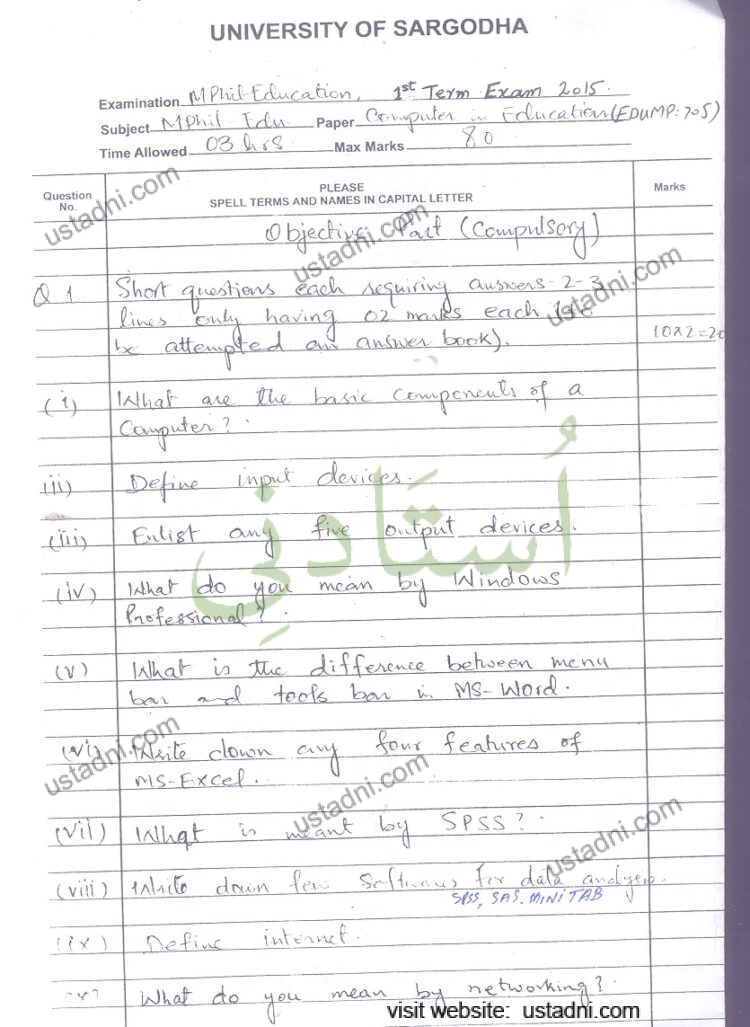 UNIVERSITY OF SARGODHA
Examination MPhil Education, 1st Term Exam 2015.
Subject MPhil Edu Paper Computer in Education (EDUMP:705)
Time Allowed 03 hrs Max Marks 80
Question No.
PLEASE
SPELL TERMS AND NAMES IN CAPITAL LETTER
Marks
Objective Part (Compulsory)
Q 1 Short questions each requiring answers 2-3
lines only having 02 marks each
be attempted on answer book). 10x2=20
(i) What are the basic components of a
Computer?
(ii) Define input devices.
(iii) Enlist any five output devices.
(iv) What do you mean by Windows
Professional?
(v) What is the difference between menu
bar and tools bar in MS-Word.
(vi) Write down any four features of
MS-Excel.
(vii) What is meant by SPSS?
(viii) Write down few Softwares for data analysis.
SPSS, SAS. MINITAB
(ix) Define internet.
(x) What do you mean by networking?
أُستَاذنِي
ustadni.com
ustadni.com
ustadni.com
ustadni.com
ustadni.com
ustadni.com
visit website: ustadni.com